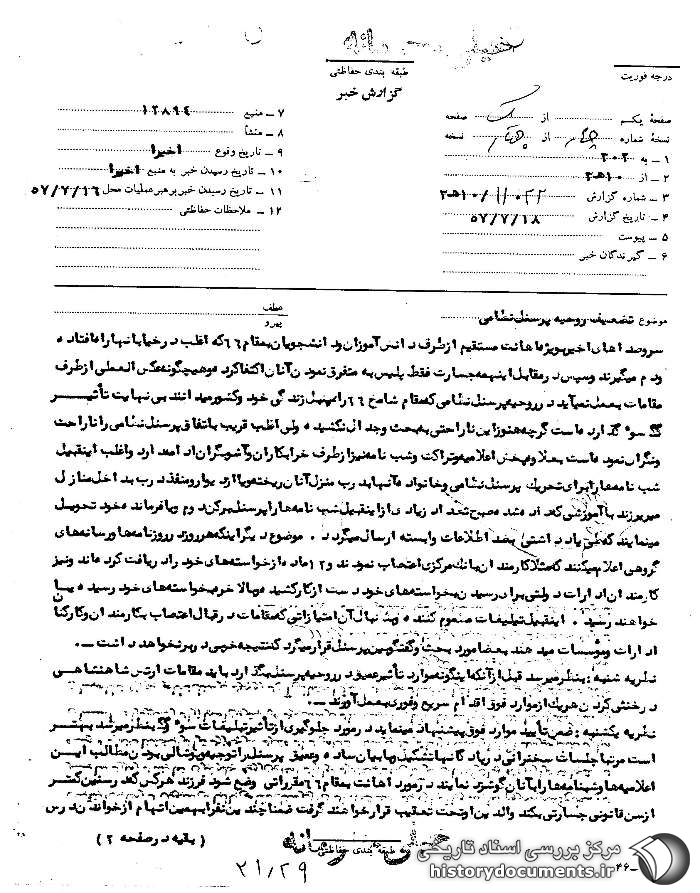 خیلی محرمانه
درجه فوریت
طبقه بندی حفاظتی
گزارش خبر
صفحهٔ یکم از صفحه
نسخهٔ شماره از نسخه
۱ ـ به ۳۰۲
۲ ـ از ۱۰هـ۲
۳ ـ شماره گزارش
۴ ـ تاریخ گزارش ۵۷/۷/۱۸
۵ ـ پیوست
۶ ـ گیرندگان خبر
۷ ـ منبع ۱۲۸۹۴
۸ ـ منشأ
۹ ـ تاریخ وقوع اخیرا
۱۰ ـ تاریخ رسیدن خبر به منبع اخیرا
۱۱ ـ تاریخ رسیدن خبر برهبر عملیات محل ۵۷/۷/۱۶
۱۲ ـ ملاحظات حفاظتی
موضوع تضعیف روحیه پرسنل نظامی
عطف
پیرو
سروصداهای اخیر بویژه اهانت مستقیم از طرف دانش آموزان و دانشجویان بمقام ۶۶ که اغلب در خیابانها راه افتاده
و دم میگیرند و سپس در مقابل اینهمه جسارت فقط پلیس به متفرق نمودن آنان اکتفا کرده و هیچگونه عکس العملی از طرف
مقامات بعمل نمیآید در روحیه پرسنل نظامی که مقام شامخ ۶۶ را سمبل زندگی خود و کشور میدانند بی نهایت تأثیر
سوء گذارده است گرچه هنوز این ناراحتی به بحث و جدال نکشیده ولی اغلب قریب باتفاق پرسنل نظامی را ناراحت
و نگران نموده است بعلاوه پخش اعلامیه و تراکت و شب نامه نیز از طرف خرابکاران و آشوبگران ادامه دارد و اغلب اینقبیل
شب نامه ها را برای تحریک پرسنل نظامی و خانواده آنها بدرب منزل آنان ریخته و یا از دیوار و منفذ درب بداخل منازل
میریزند با آموزشی که داده شده صبح تعداد زیادی از اینقبیل شب نامه ها را پرسنل پر کنده و به فرمانده خود تحویل
مینمایند که طی یادداشتی بضد اطلاعات وابسته ارسال میگردد . موضوع دیگر اینکه هر روز در روزنامه ها و رسانه های
گروهی اعلام میکنند که مثلا کارمندان بانک مرکزی اعتصاب نمودند و ۱۲ ماده از خواسته های خود را دریافت کرده اند و نیز
کارمندان ادارات دولتی برای رسیدن بخواسته های خود دست از کار کشیده و بالاخره بخواسته های خود رسیده یا
خواهند رسید . اینقبیل تبلیغات مسموم کننده و بدنبال آن امتیازاتی که مقامات در قبال اعتصاب بکارمندان و کارکنان
ادارات و مؤسسات میدهند بعضا مورد بحث و گفتگو بین پرسنل قرار میگیرد که نتیجه خوبی در بر نخواهد داشت .
نظریه شنبه : بنظر میرسد قبل از آنکه اینگونه موارد تأثیر عمیق در روحیه پرسنل بگذارد باید مقامات ارتش شاهنشاهی
در خنثی کردن هر یک از موارد فوق اقدام سریع و فوری بعمل آورند .
نظریه یکشنبه : ضمن تأیید موارد فوق پیشنهاد مینماید در مورد جلوگیری از تأثیر تبلیغات سوء بنظر میرسد بهتر
است مرتبا جلسات سخنرانی در پادگانها تشکیل و با بیان ساده و عمیق پرسنل را توجیه و پوشالی بودن مطالب این
اعلامیه ها و شبنامه ها را بآنان گوشزد نمایند در مورد اهانت بمقام ۶۶ مقرراتی وضع شود فرزند هر کس که در سنین کمتر
از سن قانونی جسارتی بکند والدین او تحت تعقیب قرار خواهند گرفت ضمنا چندین نفر به همین اتهام از خواندن درس
( بقیه در صفحه ۲ )
طبقه بندی حفاظتی
خیلی محرمانه
۲۱/۲۹
۴۶ـ
مرکز بررسی اسناد تاریخی
historydocuments.ir